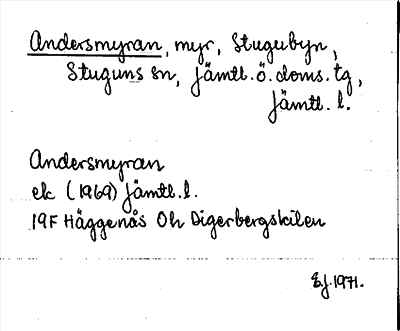 Andersmyran, myr, Stugubyn,
Stuguns sn, Jämtl. ö. doms. tg,
Jämtl. l.
Andersmyran
ek (1969) Jämtl. l.
19F Häggenås Oh Digerbergskilen
E.J. 1971.